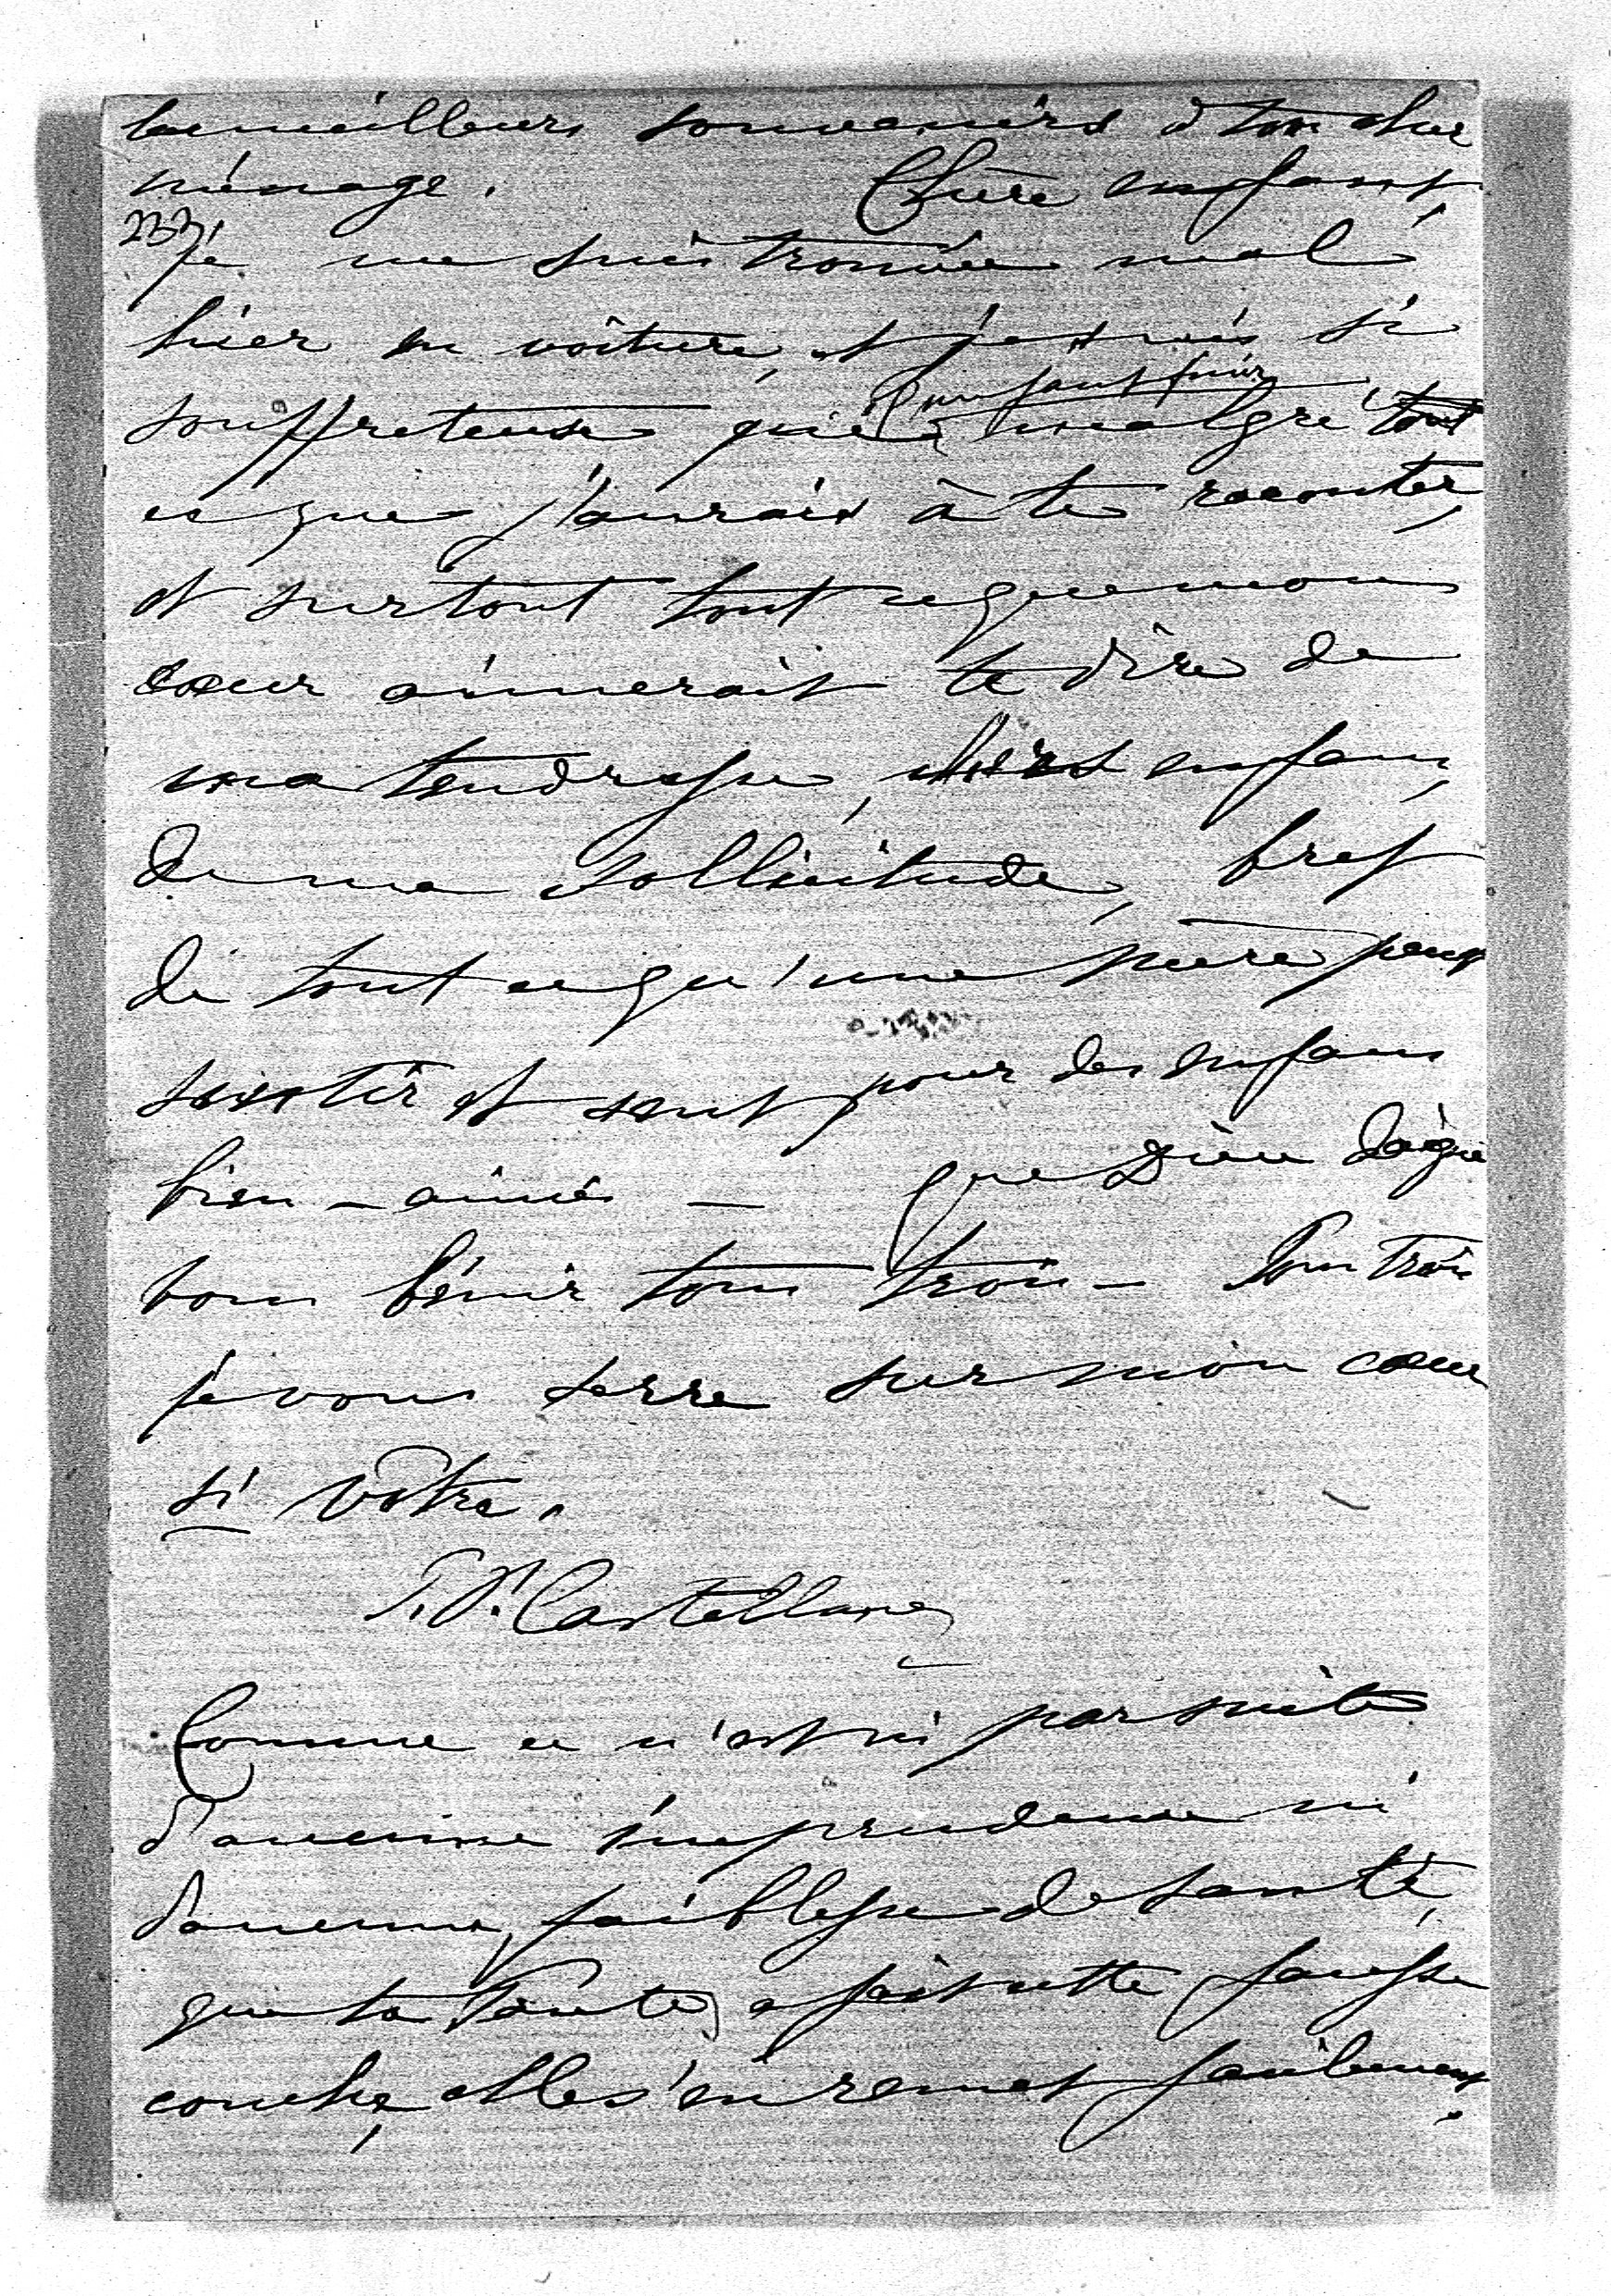 les meilleurs souvenirs à ton cher
ménage. Chère enfant,
233
je me suis trouvée mal
hier en voiture, et je suis si
souffreteuse qu'il me faut finir
malgré tout
ce que j'aurais à te raconter,
et surtout tout ce que mon
cœur aimerait te dire de
ma tendresse, chers enfans,
de ma sollicitude, bref
de tout ce qu'une mère peut
sentir et sent pour des enfans
bien-aimés — que Dieu daigne
vous bénir tous trois — Tous trois
je vous serre sur mon cœur
si vôtre.
P. Castellane
Comme ce n'est ni par suite
d'aucune imprudence ni
d'aucune faiblesse de santé,
que ta Tante a fait cette fausse
couche, elle s'en remet facilement.